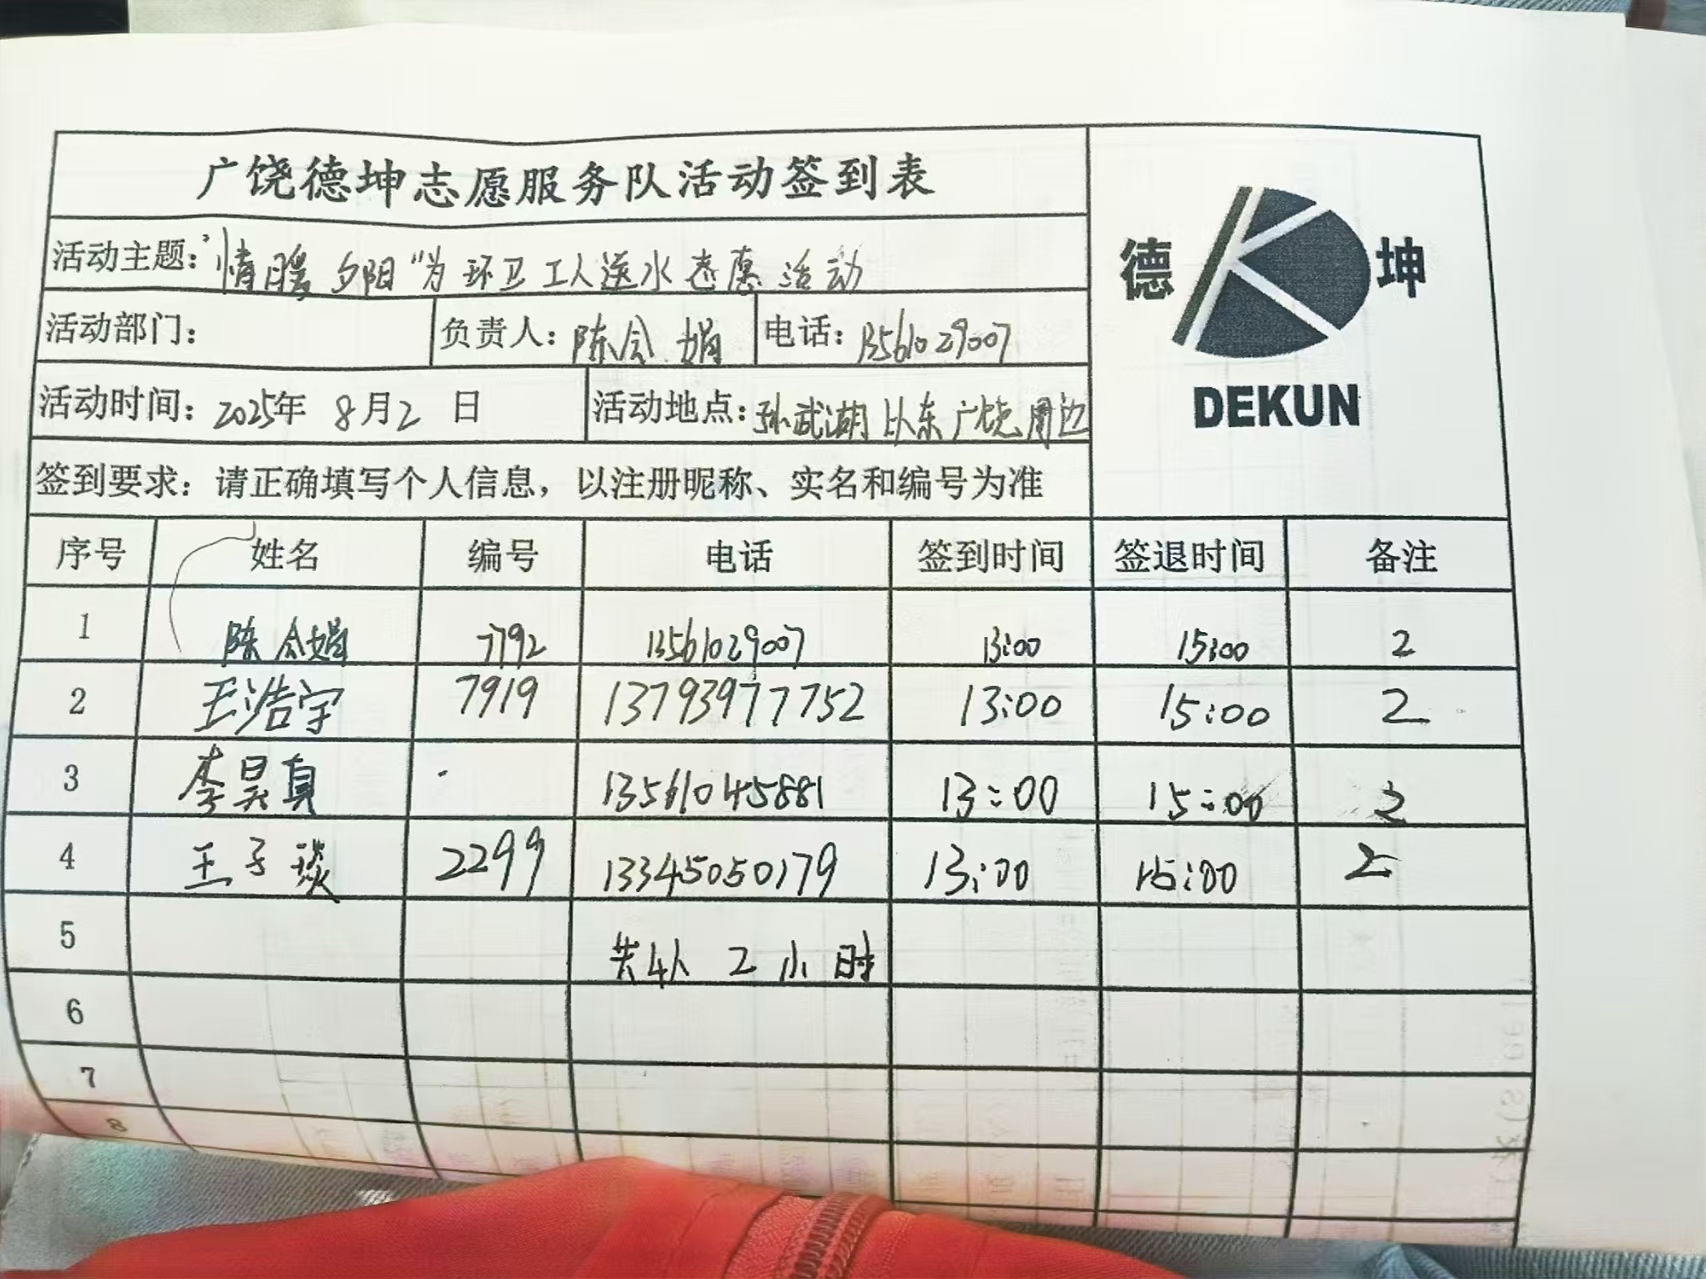 广饶德坤志愿服务队活动签到表
活动主题：“情暖夕阳”为环卫工人送水志愿活动
德 坤
DEKUN
活动部门： 负责人：陈令娟 电话：13561029007
活动时间：2025年 8月2 日 活动地点：孙武湖以东广饶周边
签到要求：请正确填写个人信息，以注册昵称、实名和编号为准
序号 姓名 编号 电话 签到时间 签退时间 备注
1 陈令娟 7792 13561029007 13:00 15:00 2
2 王浩宇 7919 13793977752 13:00 15:00 2
3 李昊真 13561045881 13:00 15:00 2
4 王子琰 2299 13345050179 13:00 15:00 2
5 共4人 2小时
6
7
8